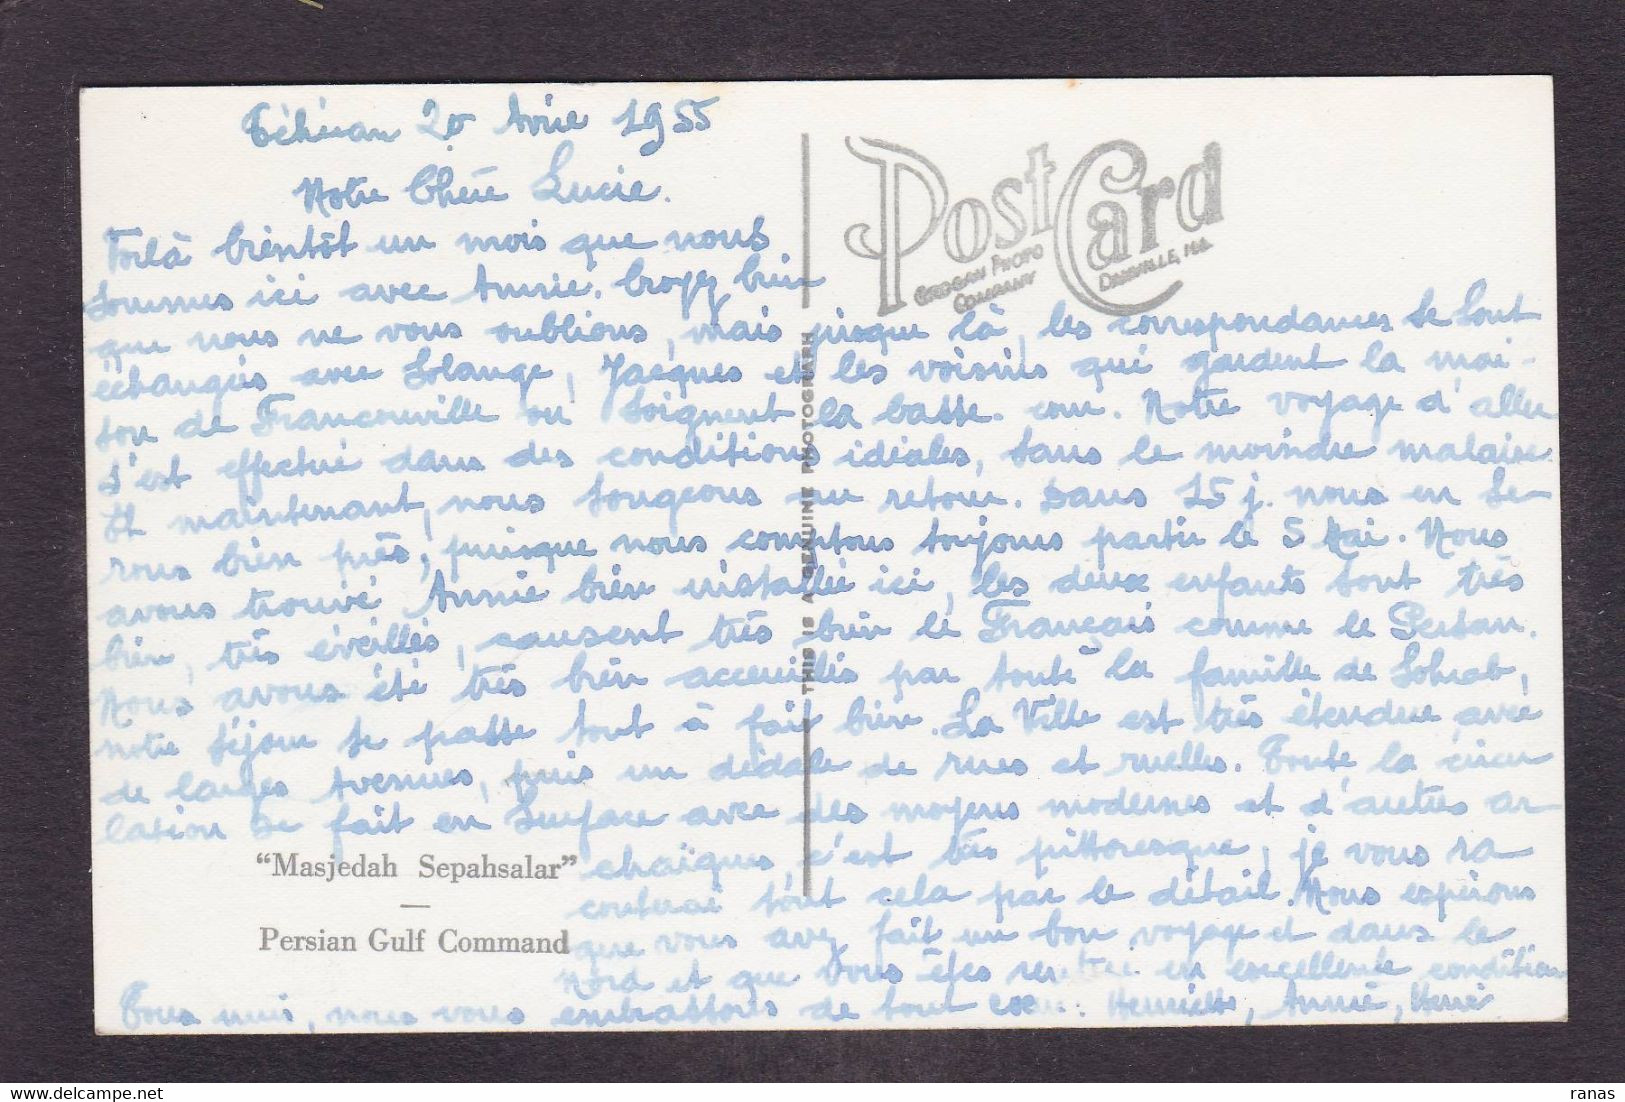 Téhéran 20 Avril 1955
Notre Chère Lucie.
Voilà bientôt un mois que nous
sommes ici avec Annie. Croyez bien
que nous ne vous oublions, mais jusque là, les correspondances se sont
échangées avec Solange, Jacques et les voisins qui gardent la mai-
son de Franconville ou soignent la basse-cour. Notre voyage d'aller
s'est effectué dans des conditions idéales, sans le moindre malaise.
Et maintenant, nous songeons au retour. Dans 15 j. nous en se-
rons bien près, puisque nous comptons toujours partir le 5 Mai. Nous
avons trouvé Annie bien installée ici, les deux enfants sont très
bien, très éveillés, causent très bien le Français comme le Persan.
Nous avons été très bien acceuillis par toute la famille de Sohrab,
notre séjour se passe tout à fait bien. La Ville est très étendue avec
de larges Avenues, puis un dédale de rues et ruelles. Toute la circu
lation se fait en surface avec des moyens modernes et d'autres ar
chaïques, c'est très pittoresque, je vous ra
conterai tout cela par le détail. Nous espérons
que vous avez fait un bon voyage et dans le
Nord et que vous êtes rentrée en excellente condition
Tous unis, nous vous embrassons de tout coeur. Henriette, Annie, Henri
PostCard
GROGAN PHOTO
COMPANY
DANVILLE, ILL.
THIS IS A GENUINE PHOTOGRAPH
"Masjedah Sepahsalar"
—
Persian Gulf Command
ranas